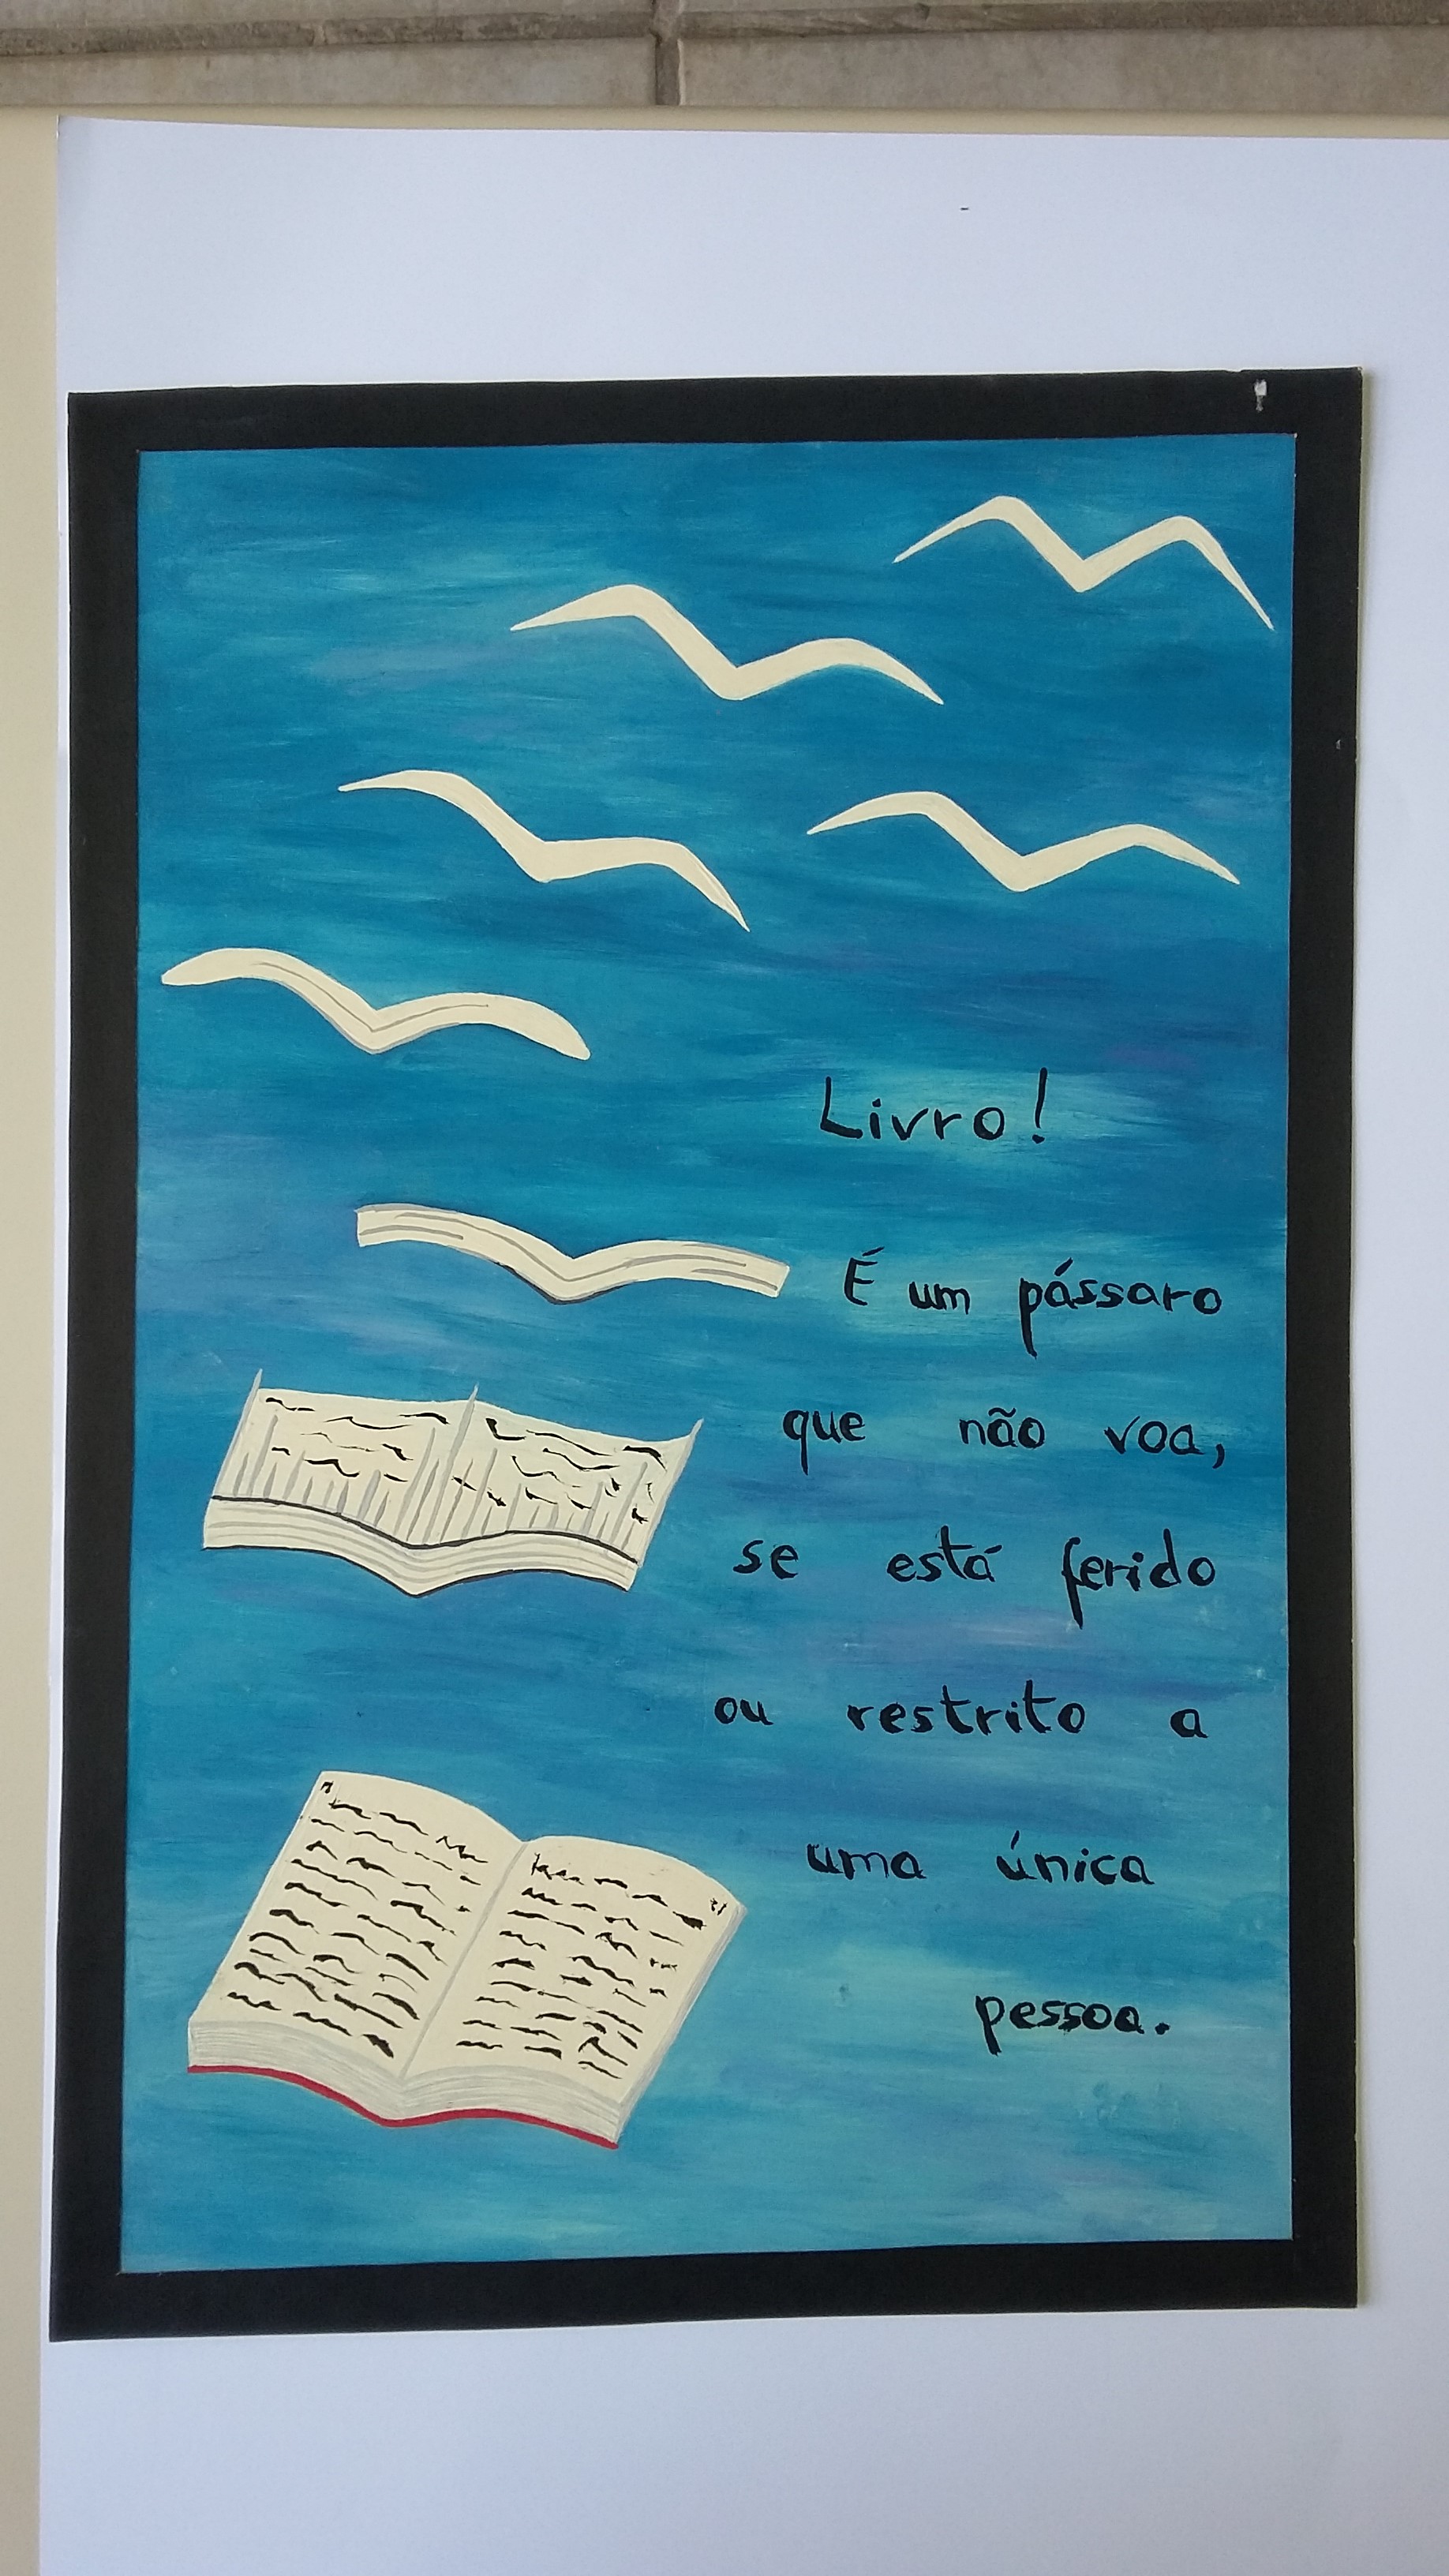 Livro!
É um pássaro
que não voa,
se está ferido
ou restrito a
uma única
pessoa.